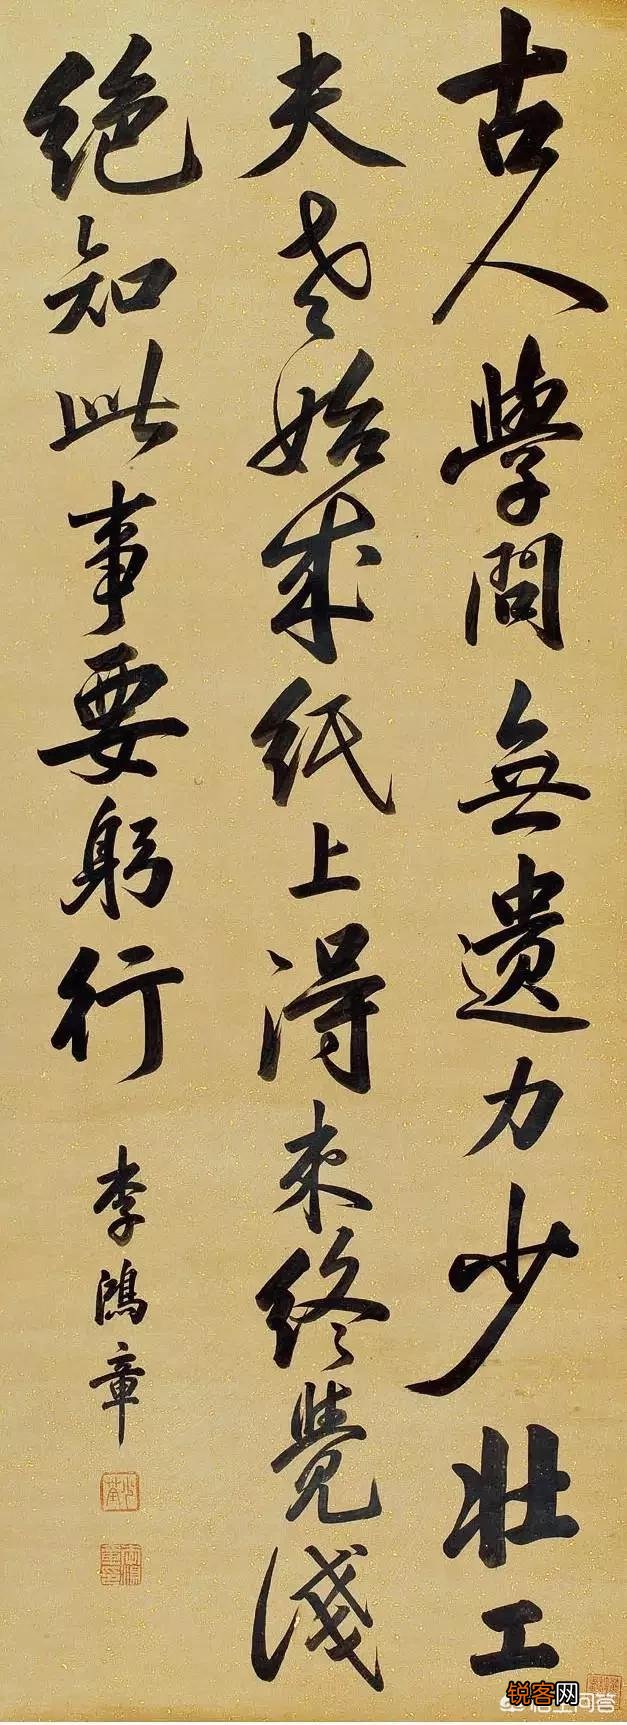 古人學問無遺力少壯工
夫老始成紙上得來終覺淺
絕知此事要躬行
李鴻章
少荃
锐客网